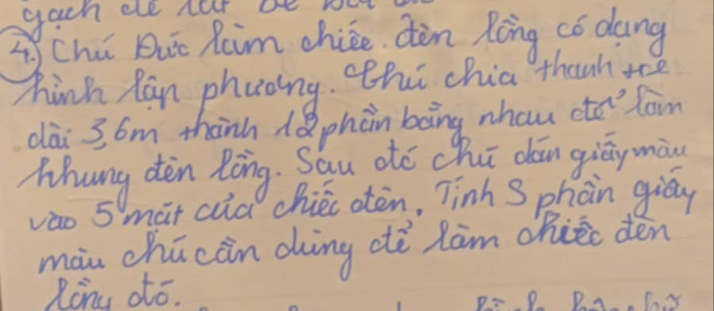 gạch để lát
4. Chú Đức làm chiếc đèn lồng có dạng
hình lập phương. Chú chia thanh tre
dài 3,6m thành 12 phần bằng nhau để làm
khung đèn lồng. Sau đó chú dán giấy màu
vào 5 mặt của chiếc đèn. Tính S phần giấy
màu chú cần dùng để làm chiếc đèn
lồng đó.